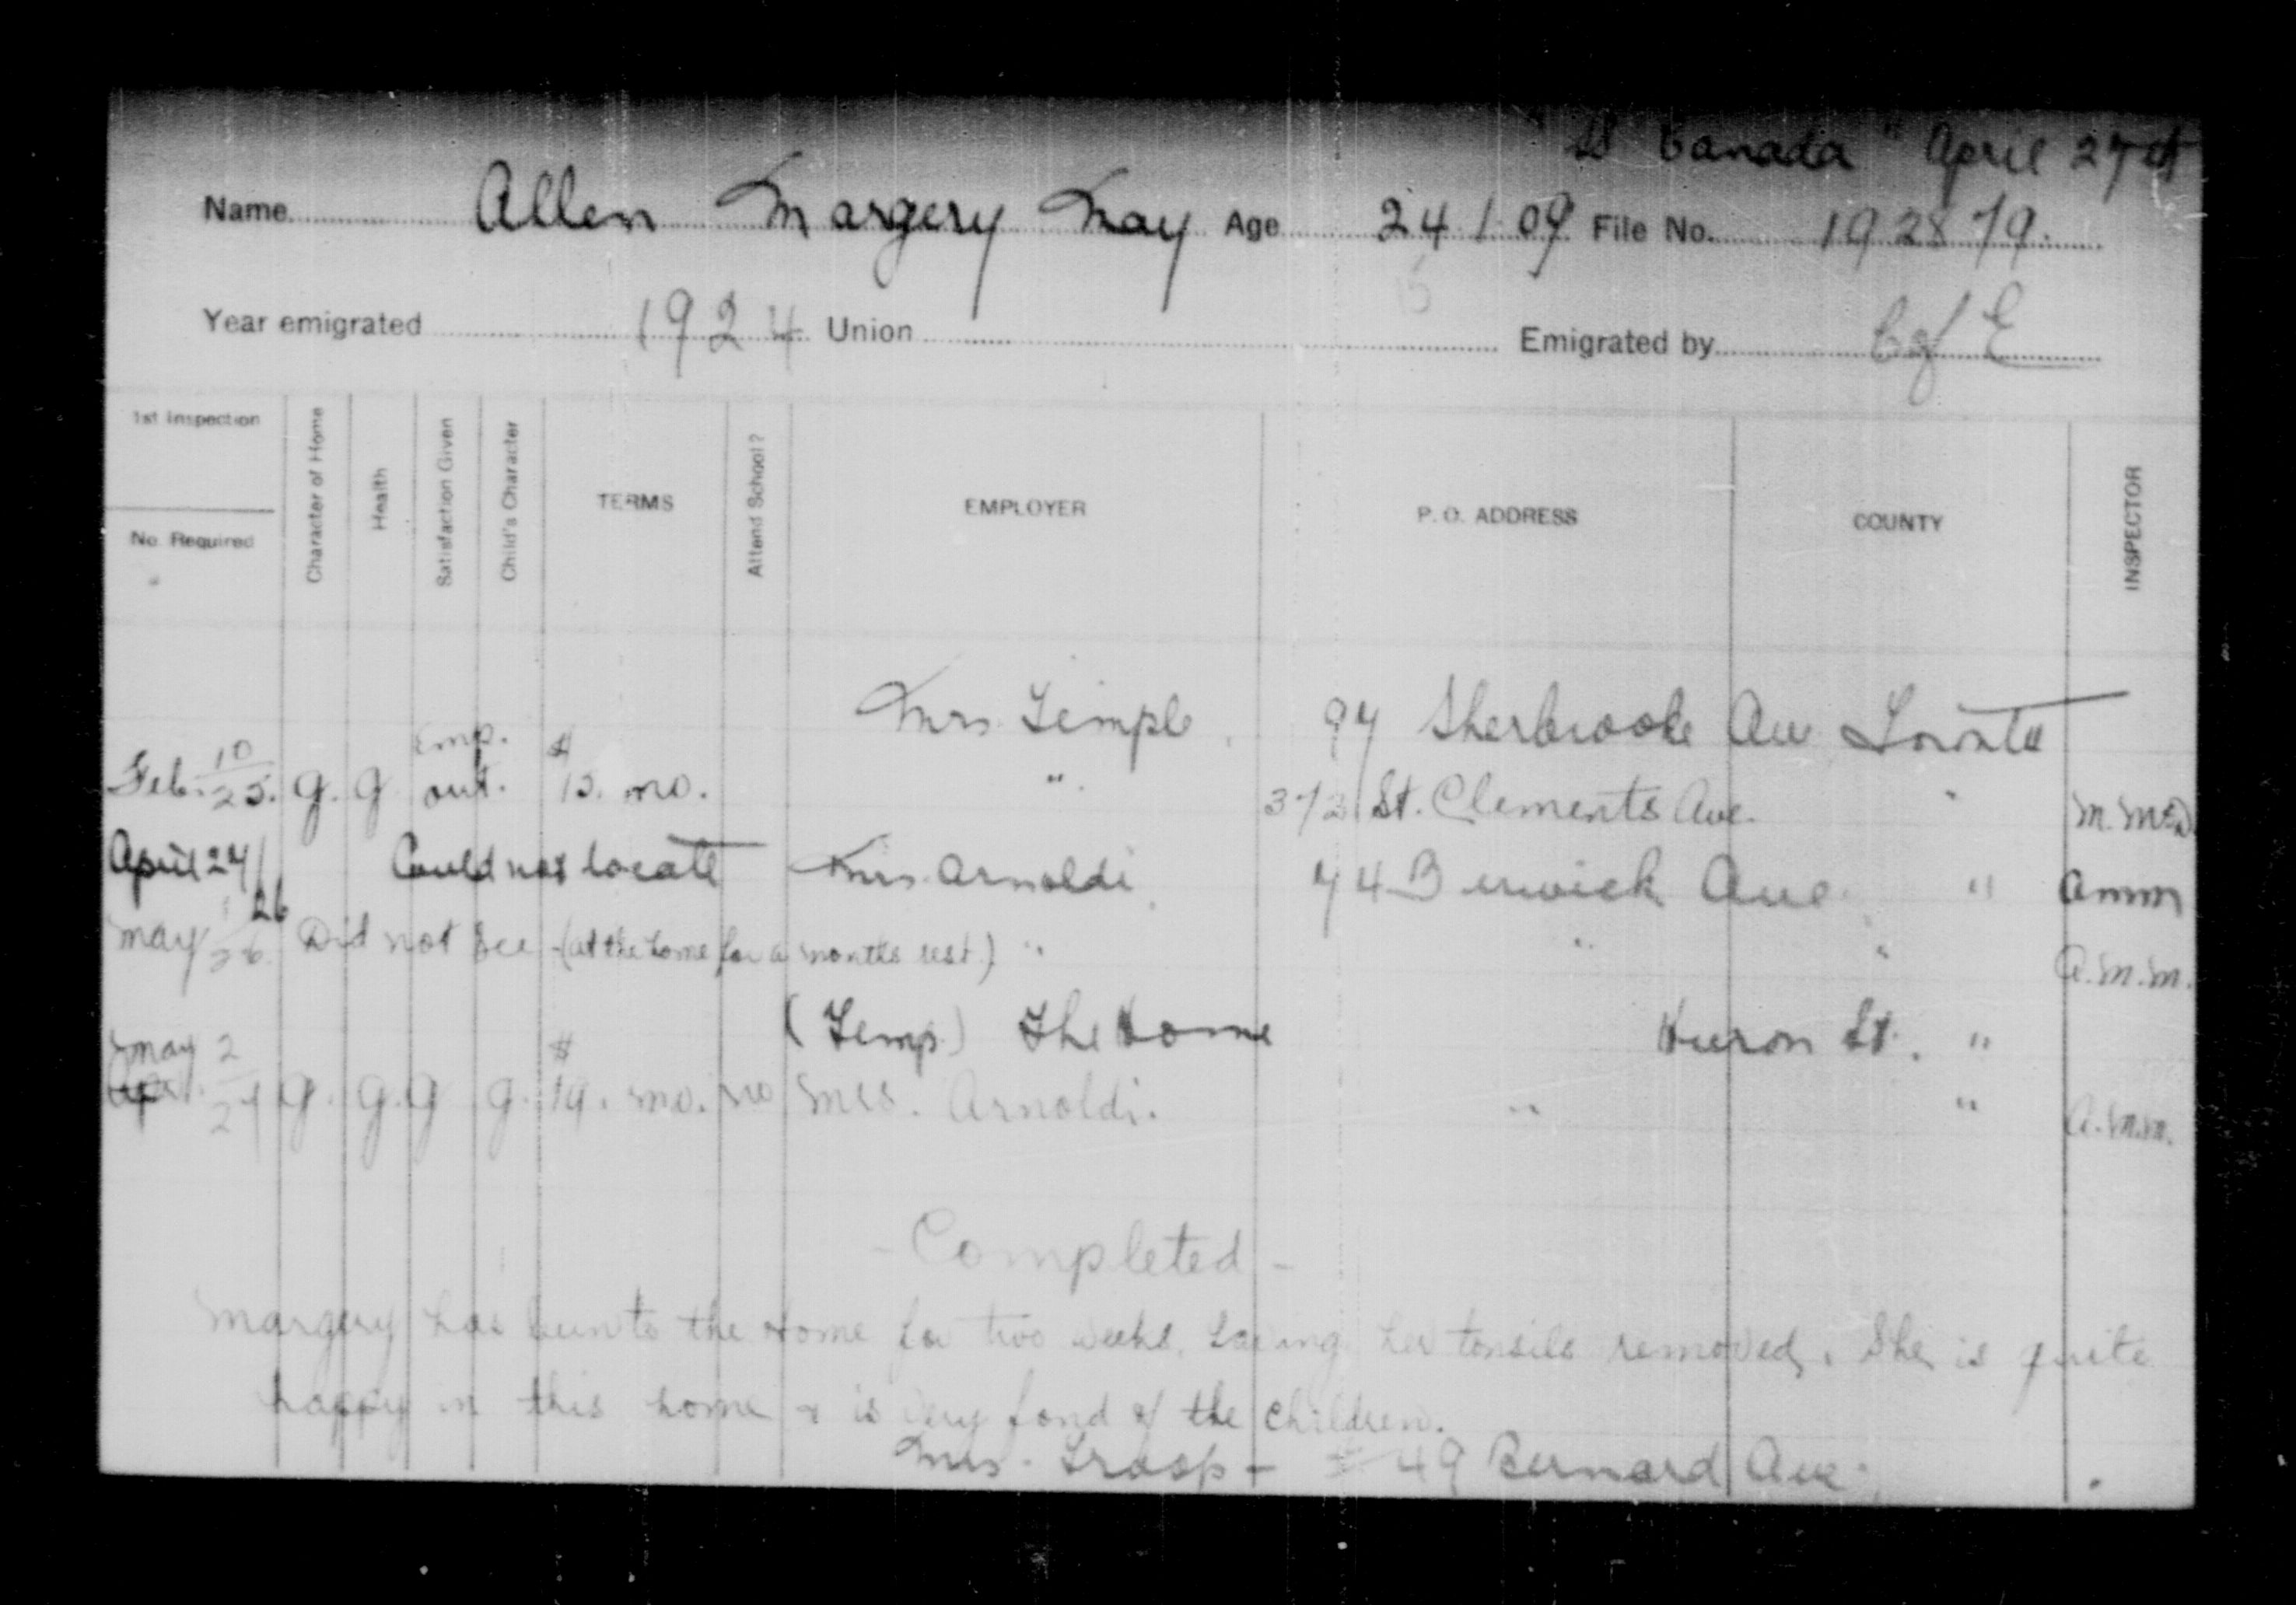 SS Canada" April 27th
Name Allen Margery May Age 24 1 09 File No. 192879.
15
Year emigrated 1924 Union Emigrated by C of E
1st Inspection
No. Required
Character of Home
Health
Satisfaction Given
Child's Character
TERMS
Attend School?
EMPLOYER
P. O. ADDRESS
COUNTY
INSPECTOR
Mrs Temple 97 Sherbrooke Ave Toronto
Feb. 10/25. g. g Emp. out. $15. mo. " 372 St. Clements Ave. "
April 27/26 Could not locate Mrs. Arnoldi 74 Berwick Ave " AMM
May 26. Did not see - (at the home for a months rest.) " " " A.M.M.
(Temp.) The Home Huron St. "
May 2/27 g. g. g g. $19. mo. no Mrs. Arnoldi. " " A.M.M.
- Completed -
Margery has been to the Home for two weeks, having her tonsils removed. She is quite
happy in this home & is very fond of the children.
Mrs. Troop - 49 Bernard Ave.